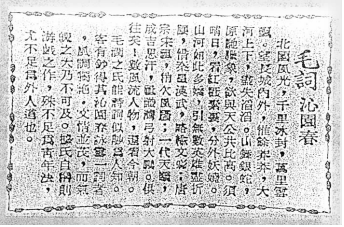 毛詞 沁園春
北國風光,千里冰封,萬里雪
飄。望長城內外,惟餘莽莽,大
河上下,盡失滔滔。山舞銀蛇,
原驅臘象,欲與天公共比高。須
晴日,看紅裝素裹,分外妖嬈。
山河如此多嬌,引無數英雄競折
腰。惜秦皇漢武,略輸文采;唐
宗宋祖,稍欠風騷;一代天驕,
成吉思汗,祇識彎弓射大鵰。俱
往矣!數風流人物,還看今朝。
毛潤之氏能詩詞似鮮為人知。
客有抄得其沁園春詠雪一詞者
,風調獨絕,文情並茂,而氣
魄之大乃不可及。據氏自稱則
游戲之作,殊不足為青年法,
尤不足為外人道也。